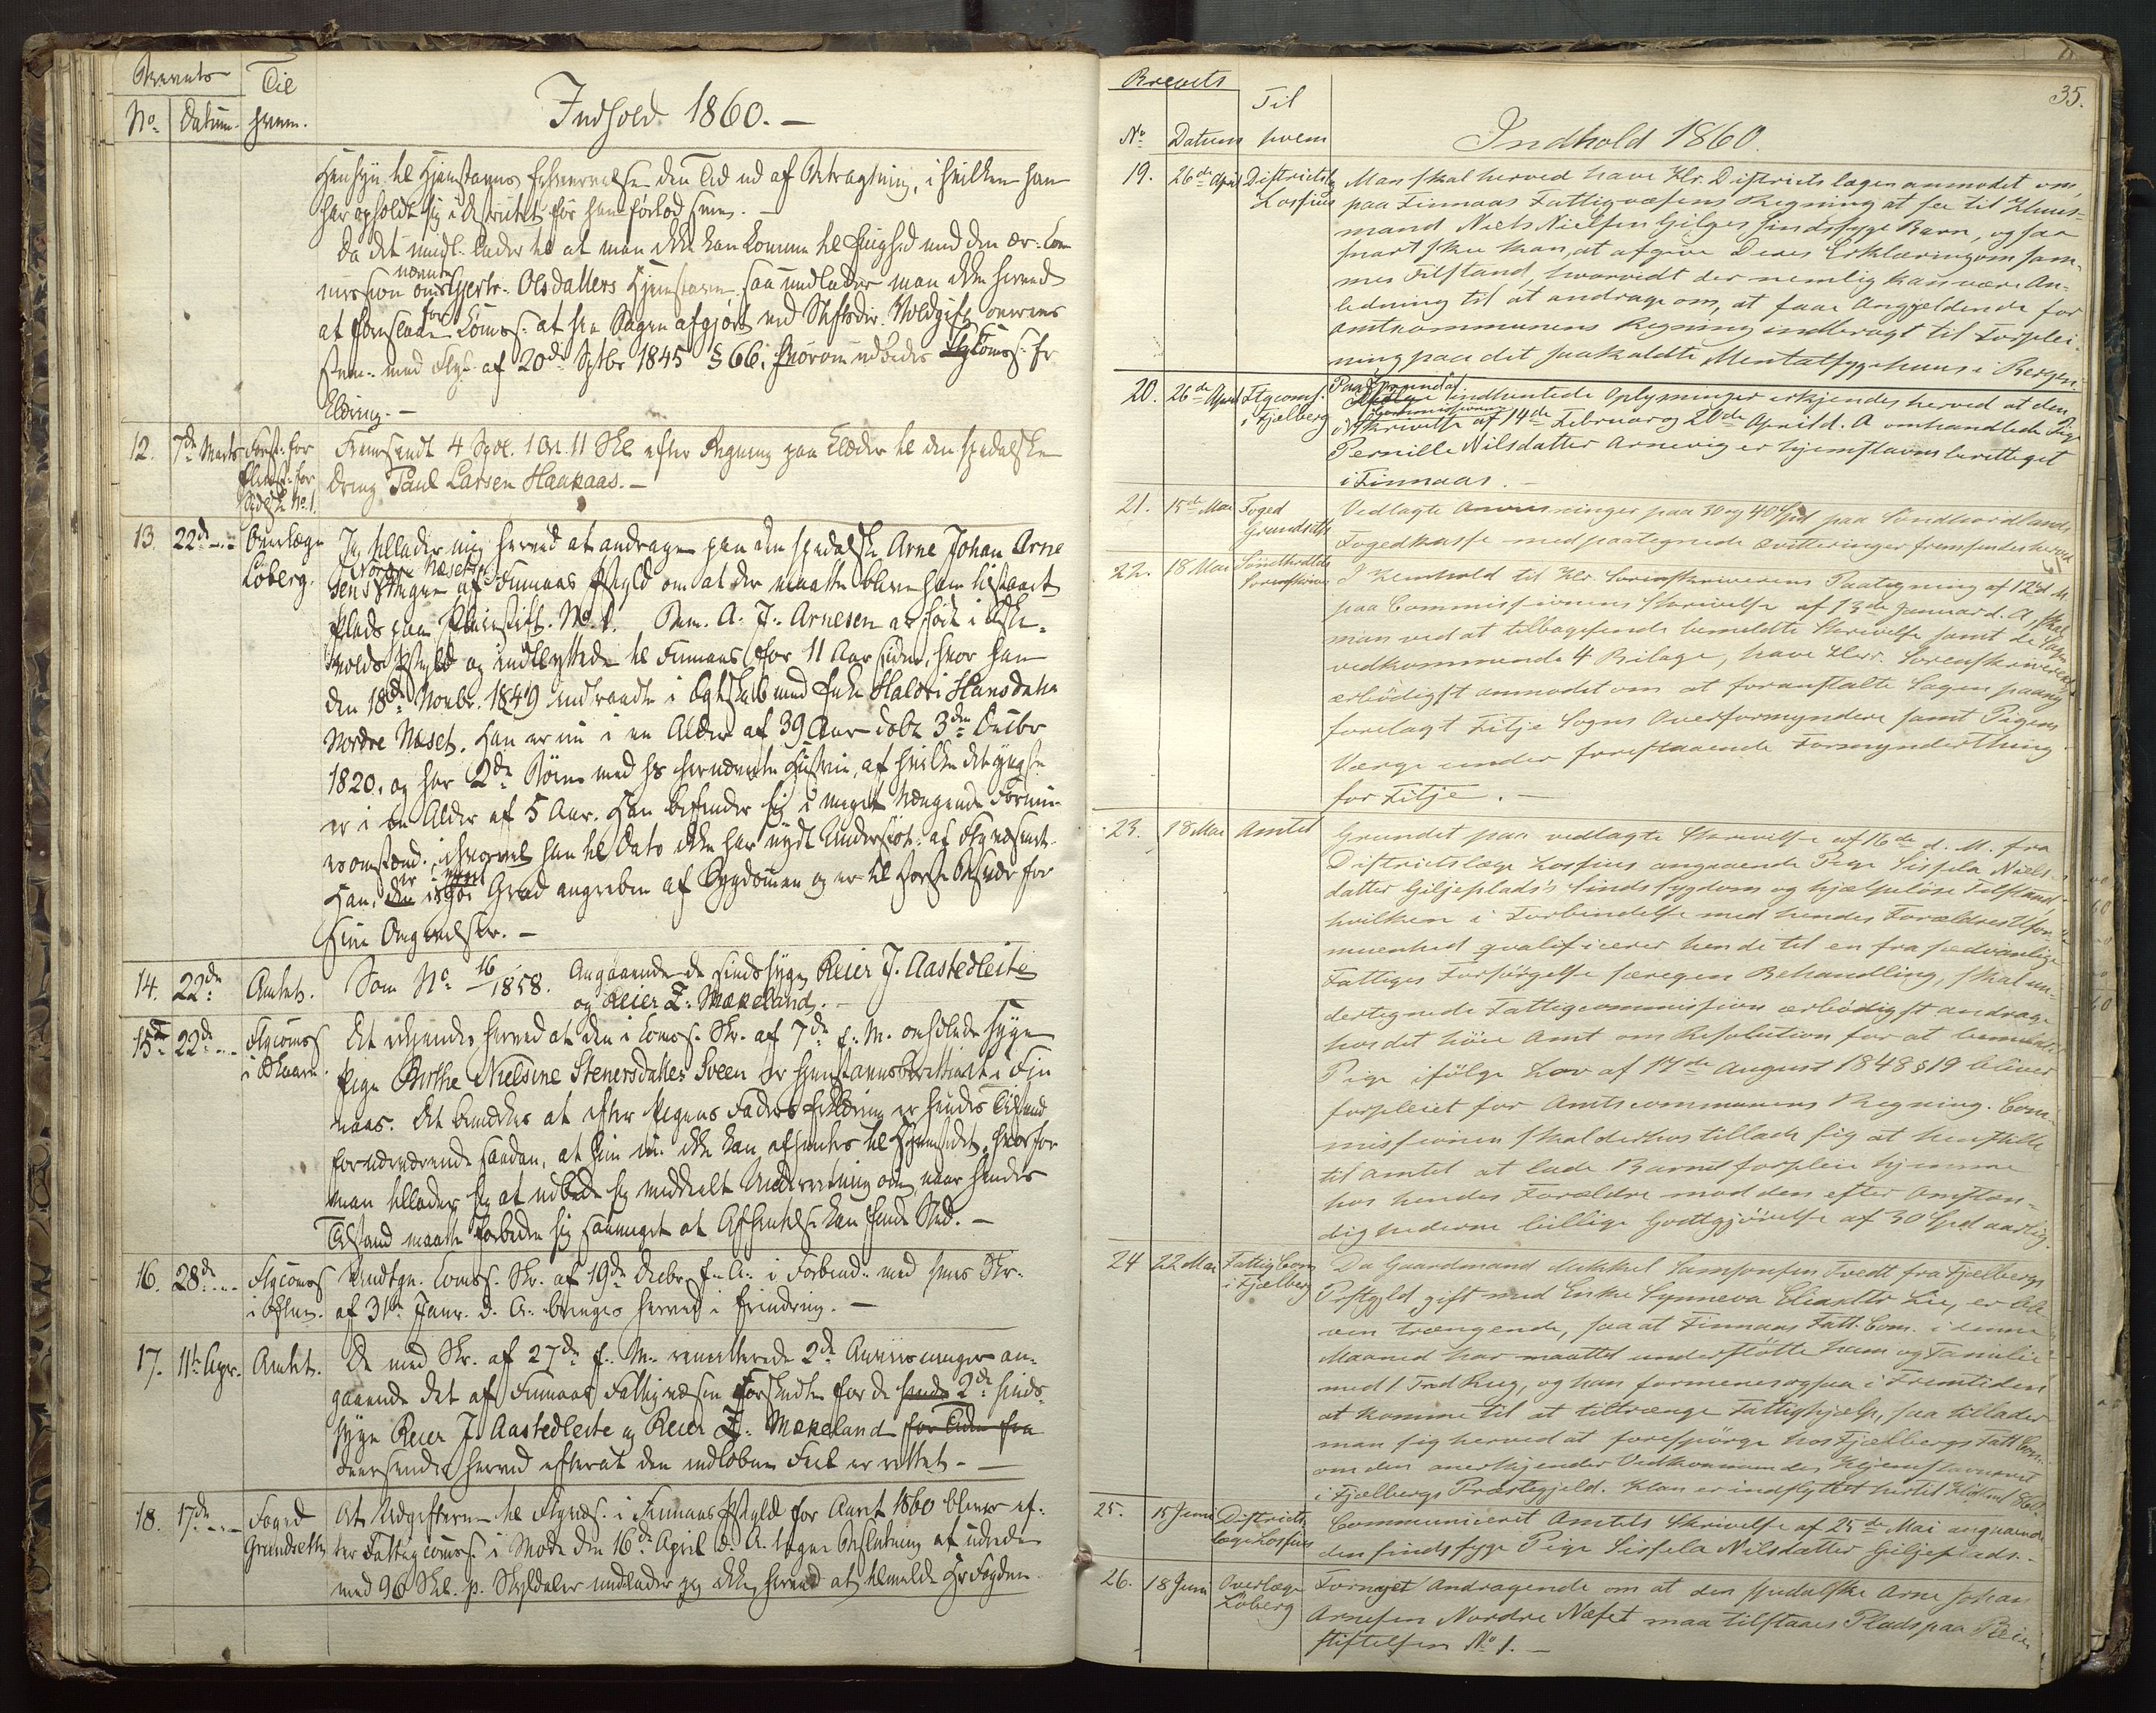 Brevets
Til
No. Datum. hvem.
Indhold 1860. —
Hensyn til Hjemstavns Erhvervelse den Tid ud af Betragtning, i hvilken han
har opholdt sig i Distriktet før han forlod
Da det imidl. lader til at man ikke kan komme til Enighed med den ær. Com
mission om nævnte Gjertr. Olsdatters Hjemstavn, saa undlader man ikke herved
at foreslaae for Comss. at faa Sagen afgjort ved Stiftsdir. Voldgift overens
stem. med Ftgl. af 20de Sptbr 1845 § 66, hvorom udbedes Comss. Er
klæring. —
12. 7de Marts Forst. for
Pleiest. for
Spedalske No. 1.
Fremsendt 4 Spd. 1 Ort 11 Skl. efter Regning paa Klæder til den spedalske
Dreng Paul Larsen Haakaas. —
13. 22de — Overlæge
Løberg.
Jeg tillader mig herved at andrage paa den spedalske Arne Johan Arne
sens Nordre Næset Vegne af Finnaas Pstgld om at der maatte blive ham tilstaaet
Plads paa Pleiestift. No. 1. Bem. A. J. Arnesen er født i
Pstgld og indflyttede til Finnaas for 11 Aar siden, hvor han
den 18de Novbr. 1849 indtraadte i Egteskab med Enke Haldri Hansdatter
Nordre Næset. Han er nu i en Alder af 39 Aar døbt 3de Decbr
1820, og har 2de Børn med hs hernævnte Hustru, af hvilke det yngste
er i en Alder af 5 Aar. Han befinder sig i meget trængende Formu-
esomstænd. ihvorvel han til Dato ikke har nydt Understøt. af Ftgvæsenet.
Han er i høi Grad angreben af Sygdommen og er til stor Byrde for
sine Omgivelser. —
14. 22de Amtet. Som No. 16/1858. Angaaende de sindssyge Reier J. Aastedleite
og Reier Z. Mækeland. —
15de 22de — Ftgcomss
i Skaare.
Det erkjendes herved at den i Comss. Skr. af 7de f. M. omhdlede syge
Pige Birthe Nielsine Stenersdatter Sveen er hjemstavnsberettiget i Fin
naas. Det bemærkes at efter Pigens Faders Erklæring er hendes Tilstand
for nærværende saadan, at hun nu ikke kan afhentes til Hjemstedet, hvorfor
man tillader sig at udbede sig meddeelt Underretning om, naar hendes
Tilstand maatte forbedre sig saameget at Afhentelse kan finde Sted. —
16. 28de — Ftgcomss
i
Undtgn. Comss. Skr. af 19de Decbr. f. A. i Forbind. med hens Skr.
af 31te Janr. d. A. bringes herved i Erindring. —
17. 11te Apr. Amtet. De med Skr. af 27de f. M. remitterede 2de Anviisninger an-
gaaende det af Finnaas Fattigvæsen Forskudte for de 2de sinds-
syge Reier J. Aastedleite og Reier Z. Mækeland for Tiden fra
tilbagesendes herved efterat den indløbne Feil er rettet. —
18. 17de — Foged
Grundseth
At Udgifterne til Ftgvæs. i Finnaas Pstgld for Aaret 1860 bliver ef-
ter Fattigcomss. i Møde den 16de April d. A. tagne Beslutning at udrede
med 96 Skl. p. Skyldaler undlader jeg ikke herved at tilmelde Hr Fogden.
35.
Brevets
Til
No Datum hvem
Indhold 1860.
19. 26de April Districtslg
Losfius
Man skal herved have Hr. Districtslægen anmodet om,
paa Finnaas Fattigvæsens Regning at see til Huus-
mand Niels Nielsen Giljes sindssyge Barn, og saa
snart skee kan, at afgive Deres Erklæring om sam-
mes Tilstand, hvorvidt der nemlig kan være An-
ledning til at andrage om, at faae Angjeldende for
Amtcommunens Regning indbragt til Forplei-
ning paa det saakaldte Mentalsygehuus i Bergen.
20. 26de April Ftgcomss.
i Fjelberg
Paa Grund af indhentede Oplysninger erkjendes herved at den
i Commissionens Skrivelse af 14de Februar og 20de April d. A omhandlede Pige
Pernille Nilsdatter Arnevig er hjemstavnsberettiget
i Finnaas. —
21. 15de Mai Foged
Grundseth
Vedlagte Anvisninger paa 30 og 40 Spd paa Søndhordlands
Fogedkasse med paategnede Qvitteringer fremsendes herved
22. 18 Mai Søndhordlds
Sorenskriver
I Henhold til Hr. Sorenskriverens Paategning af 12 d. M.
paa Commissionens Skrivelse af 13de Januar d. A skal
man ved at tilbagesende bemeldte Skrivelse samt de Sagen
vedkommende 4 Bilage, have Herr. Sorenskriveren
ærbødigst anmodet om at foranstalte Sagen paany
forelagt Fitje Sogns Overformyndere samt Pigens
Værge under forestaaende Formynderthing
for Fitje. —
23. 18 Mai Amtet Grundet paa vedlagte Skrivelse af 16de d. M. fra
Districtslæge Losfius angaaende Pige Sissela Niels-
datter Giljeplads's Sindssygdom og hjælpeløse Tilstand,
hvilken i Forbindelse med hendes Forældres Ufor-
muenhed qvalificerer hende til en fra sedvanlige
Fattiges Forsørgelse særegen Behandling, skal un-
dertegnede Fattigcommission ærbødigst andrage
hos det høie Amt om Resolution for at bemeldte
Pige ifølge Lov af 17de August 1848 § 19 bliver
forpleiet for Amtscommunens Regning. Com-
missionen skal derhos tillade sig at henstille
til Amtet at lade Barnet forpleie hjemme
hos hendes Forældre mod den efter Omstæn-
dighederne billige Godtgjørelse af 30 Spd aarlig.
24 22 Mai Fattig Com
i Fjælberg
Da Gaardmand Mikkel Samsonsen Tvedt fra Fjælbergs
Prstgjld gift med Enke Synneva Eliasdttr Lie, er ble-
ven trængende, saa at Finnaas Fatt. Com. i denne
Maaned har maattet understøtte ham og Familie
med 1 Tnd Rug, og han formenes ogsaa i Fremtiden
at komme til at tiltrænge Fattighjælp, saa tillader
man sig herved at forespørge hos Fjælbergs Fatt Com.
om den anerkjender Vedkommendes Hjemstavnsret
i Fjælbergs Præstegjeld. Han er indflyttet hertil
25. 15 Juni Districts
læge Losfius
Communiceret Amtets Skrivelse af 25de Mai angaaende
den sindssyge Pige Sissela Nilsdatter Giljeplads. —
26. 18 Juni Overlæge
Løberg
Fornyet Andragende om at den spedalske Arne Johan
Arnesen Nordre Næset maa tilstaaes Plads paa Pleie
stiftelsen No 1. —